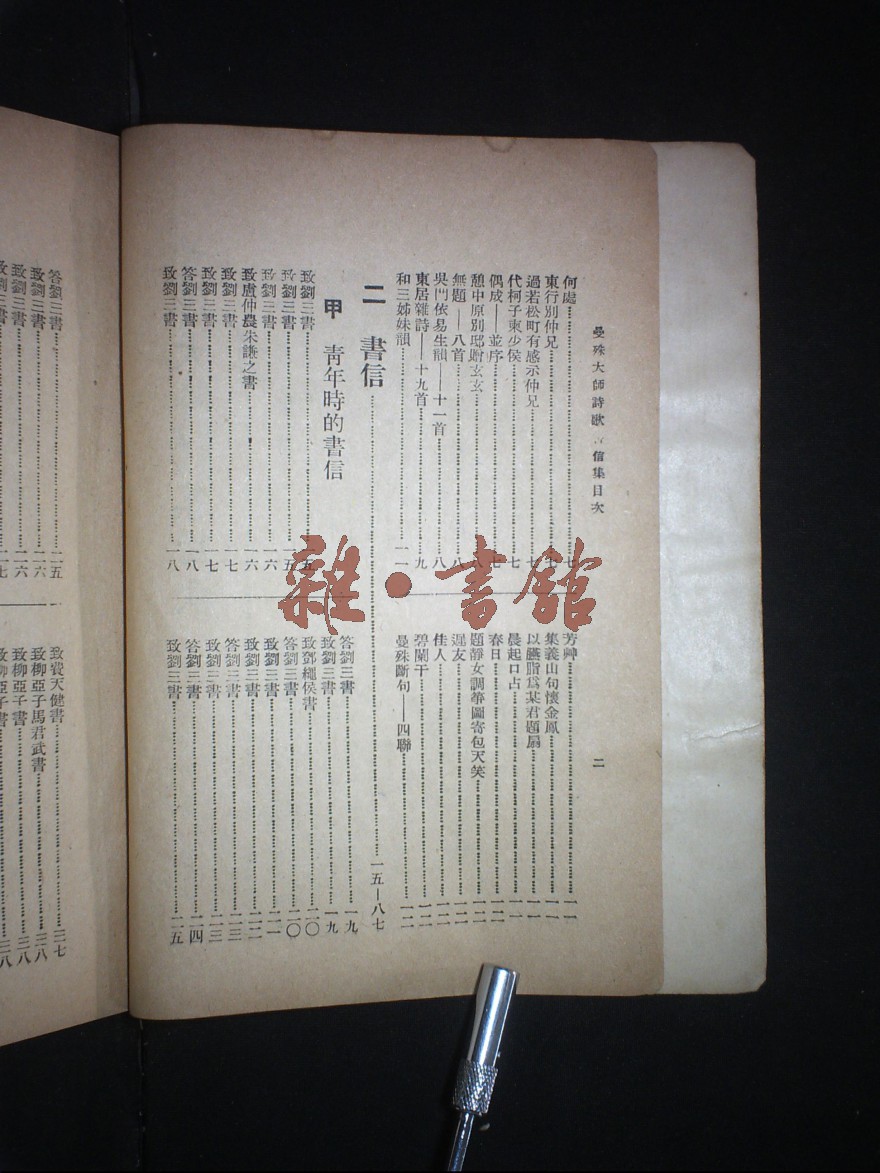 曼殊大師詩歌 信集目次
二
何處……七
東行別仲兄……七
過若松町有感示仲兄……七
代柯子柬少侯……七
偶成——並序……七
憩中原別邸贈玄玄……八
無題——八首……八
吳門依易生韻——十一首……八
東居雜詩——十九首……九
和三姊妹韻……一一
芳艸……一一
集義山句懷金鳳……一一
以臙脂爲某君題扇……一一
晨起口占……一一
春日……一二
題靜女調箏圖寄包天笑……一二
遲友……一二
佳人……一二
碧闌干……一二
曼殊斷句——四聯……一二
二 書信……一五—八七
甲 青年時的書信
致劉三書……一五
致劉三書……一五
致劉三書……一六
致盧仲農朱謙之書……一六
致劉三書……一七
致劉三書……一七
答劉三書……一八
致劉三書……一八
答劉三書……一九
致劉三書……一九
致鄧繩侯書……二〇
答劉三書……二〇
致劉三書……二一
致劉三書……二二
致劉三書……二三
致劉三書……二三
答劉三書……二四
致劉三書……二五
答劉三書……二五
致劉三書……二六
致劉三書……二六
致劉三書……二七
致費天健書……三七
致柳亞子馬君武書……三八
致柳亞子書……三八
致柳亞子書……三八
雜·書館